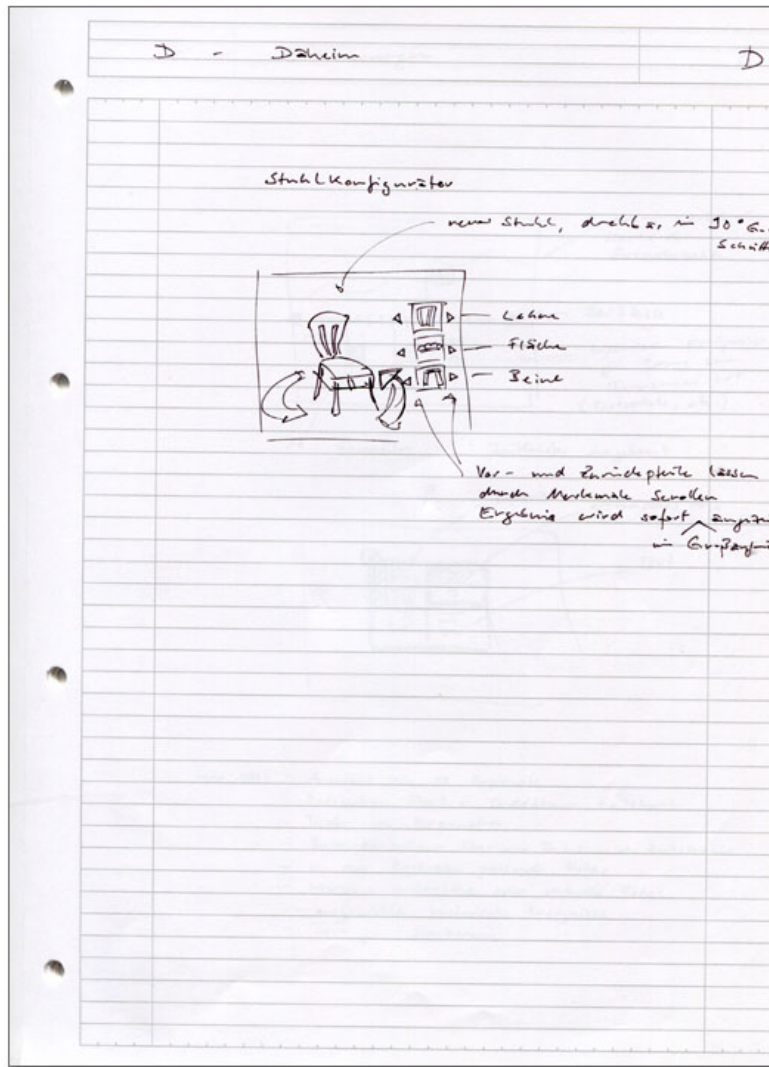 D - Daheim
D
Stuhlkonfigurator
neuer Stuhl, drehbar in 90°
Lehne
Fläche
Beine
Vor- und Zurückpfeile lassen
durch Merkmale Scrollen
Ergebnis wird sofort
in